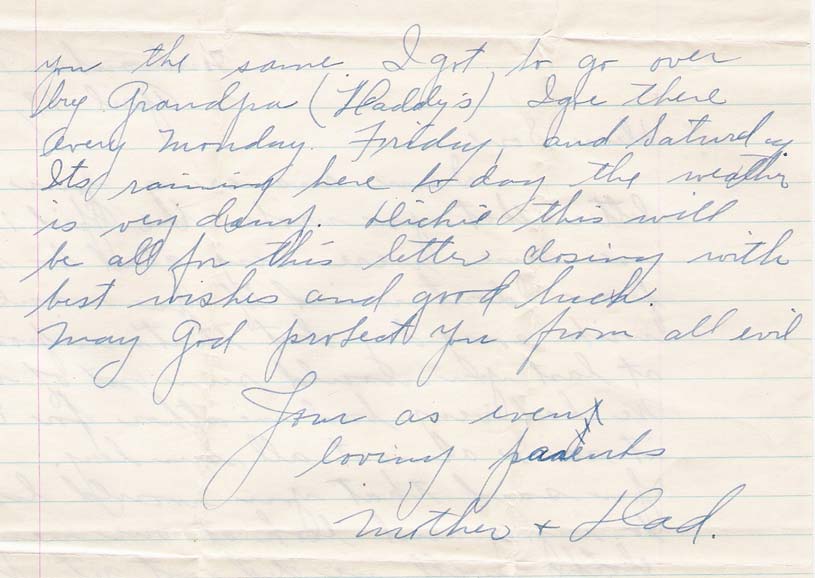 you the same. I got to go over
by Grandpa (Haddy's) I go there
every Monday. Friday, and Saturday
Its raining here to day the weather
is very damp. Dickie this will
be all for this letter closing with
best wishes and good luck.
May God protect you from all evil
Your as every
loving parents
xxx
Mother + Dad.